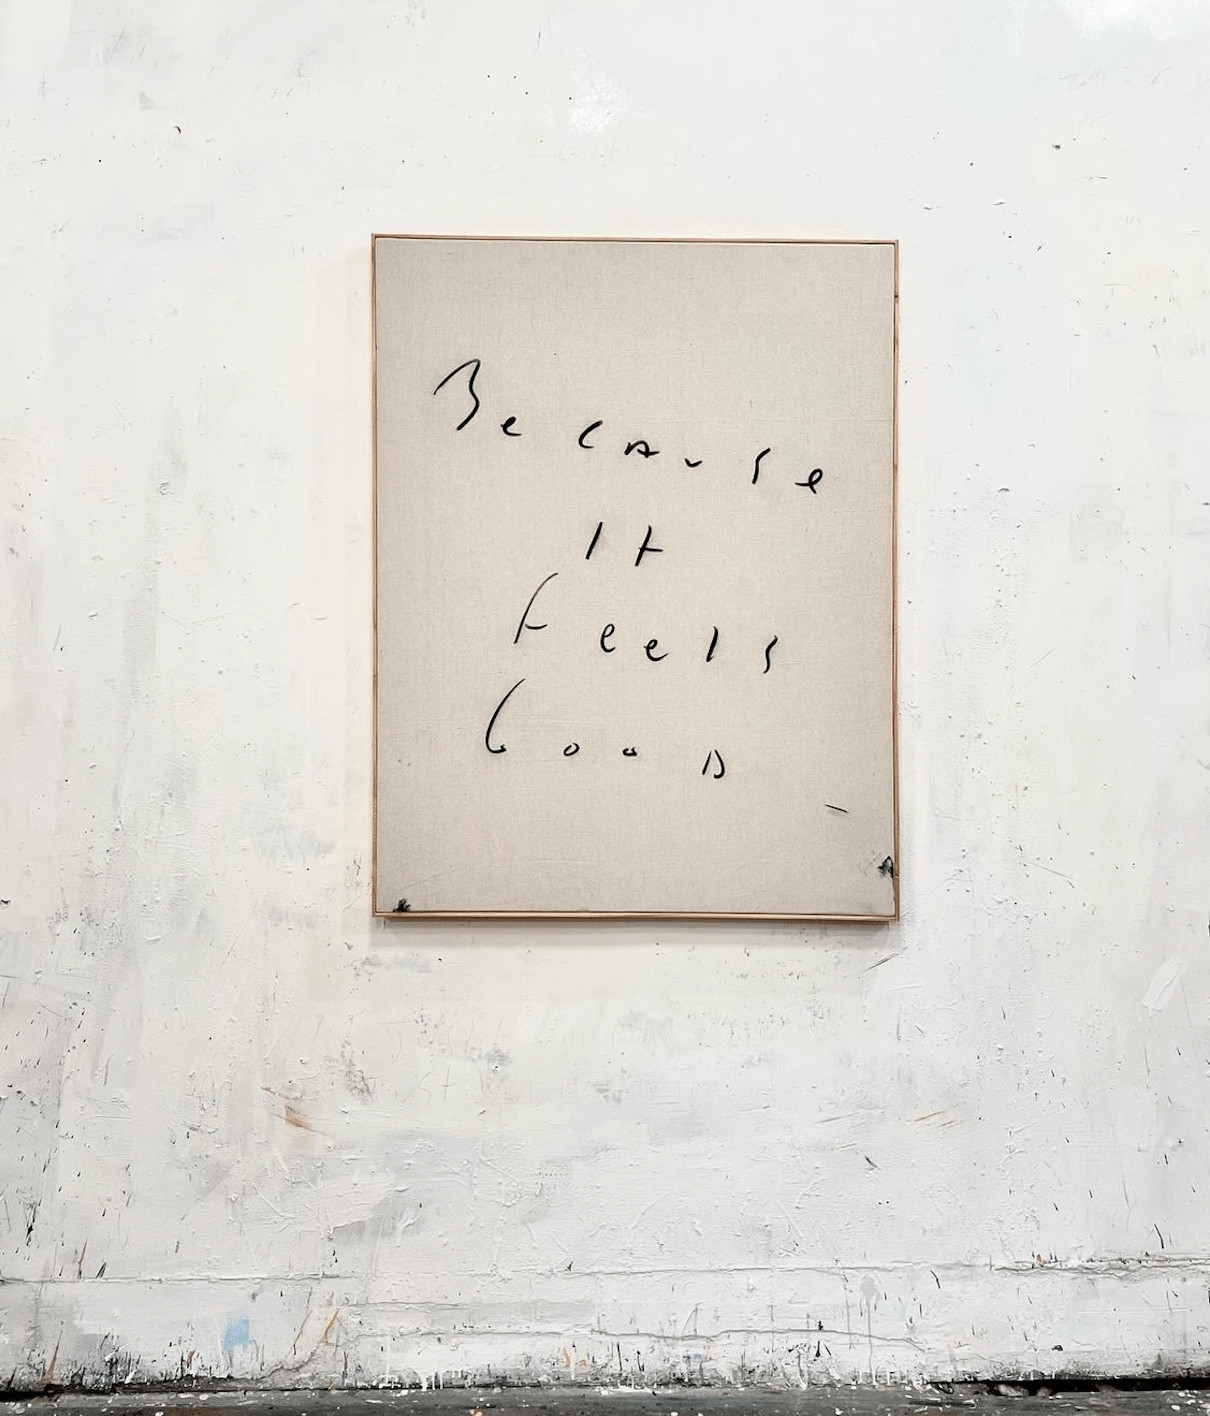 Because
It
feels
GooD